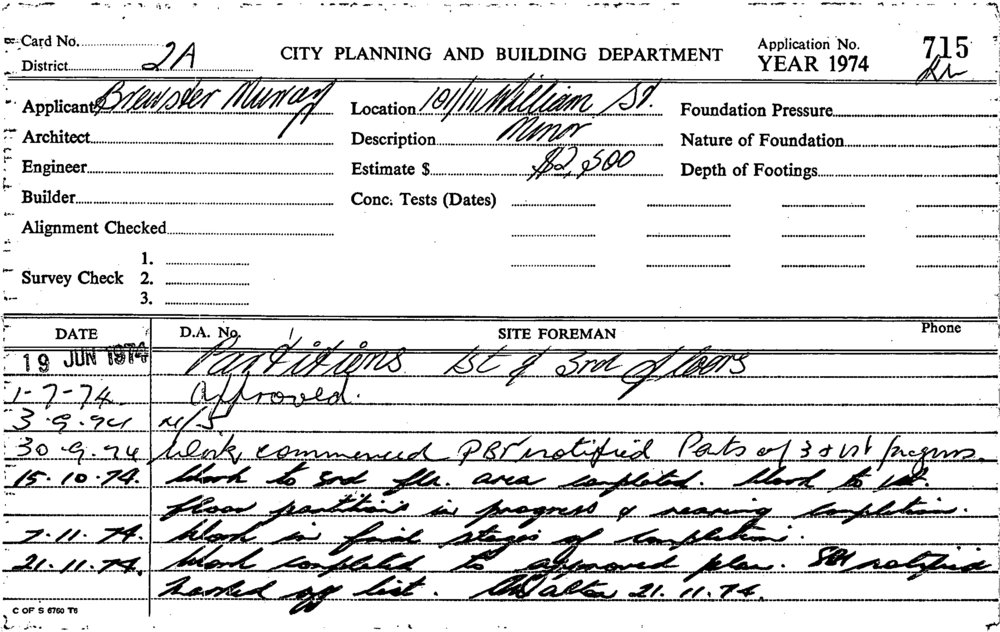 Card No.
District 2A
CITY PLANNING AND BUILDING DEPARTMENT
Application No. 715
YEAR 1974
Applicant Brewster Murray
Location 101/111 William St.
Foundation Pressure
Architect
Description Minor
Nature of Foundation
Engineer
Estimate $ $2,500
Depth of Footings
Builder
Conc. Tests (Dates)
Alignment Checked
1.
Survey Check 2.
3.
DATE D.A. No. SITE FOREMAN Phone
19 JUN 1974 Partitions 1st & 3rd floors
1-7-74 Approved.
3.9.74 N/S
30.9.74 Work commenced notified Parts of 3 & 1st
15.10.74. Work to 3rd flr. area completed. Work to 1st.
floor partitions in progress & nearing completion.
7.11.74. Work in final stages of completion.
21.11.74. Work completed to approved plan. notified
marked off list. 21.11.74.
C OF S 6760 T6